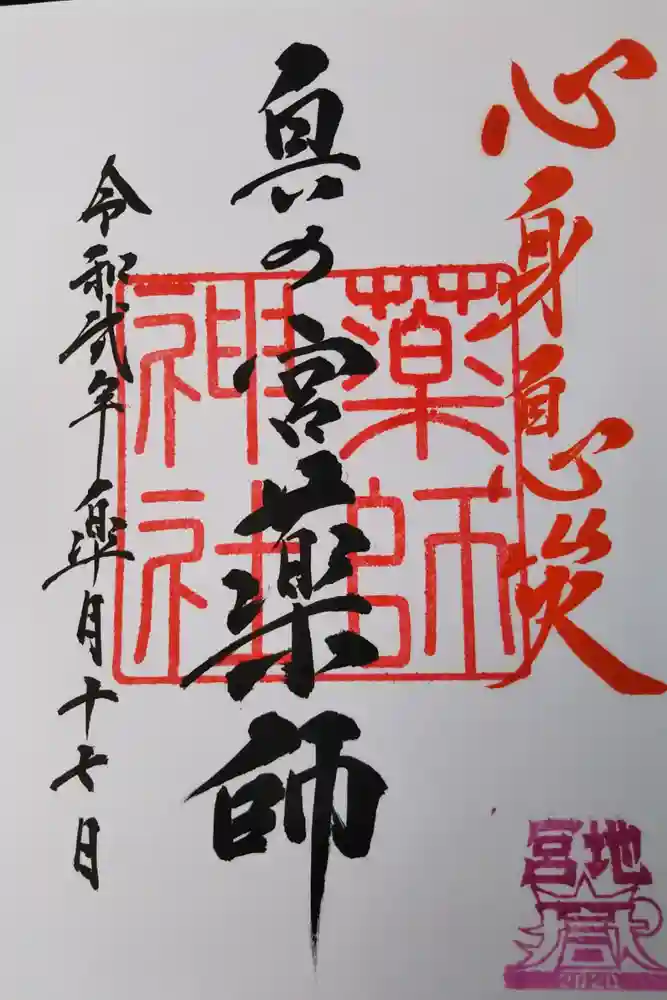 心身息災
真の宮薬師
薬師神社
令和弐年皐月十七日
宮地嶽
2020